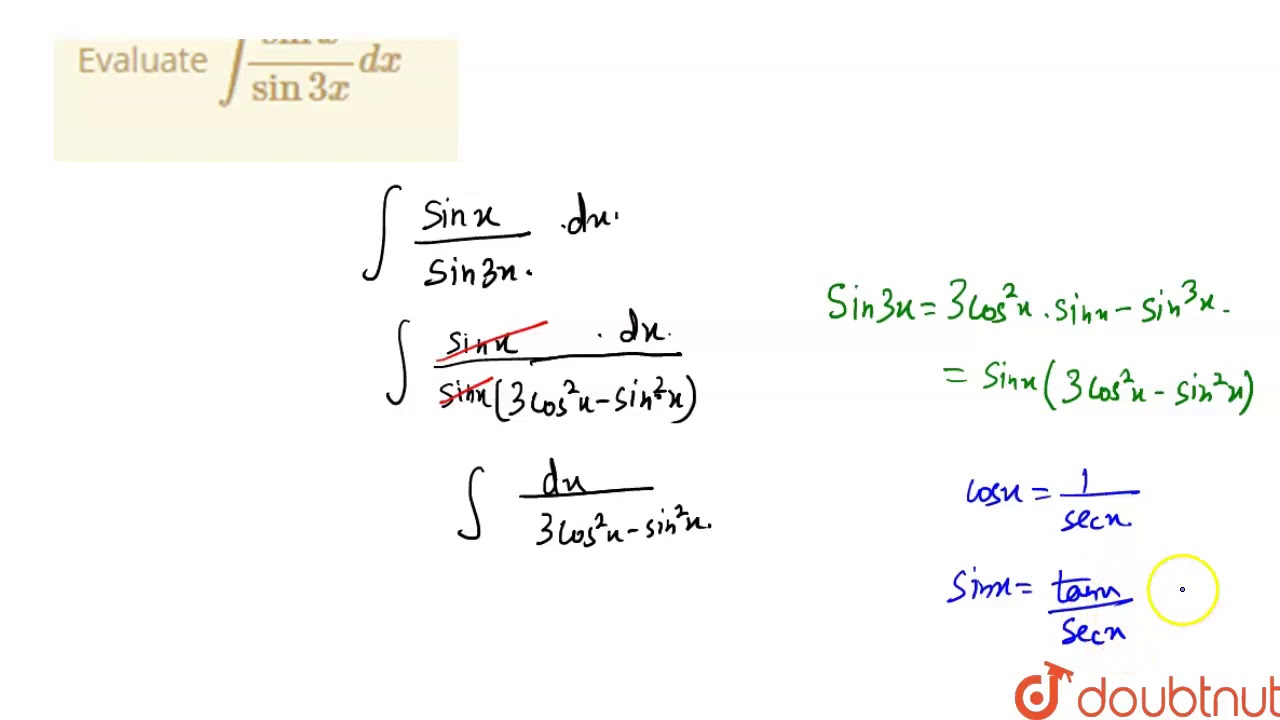 Evaluate ∫ sin x / sin 3x dx
∫ sinx / sin3x . dx.
∫ sinx . dx. / sinx (3cos²x - sin²x)
∫ dx / 3cos²x - sin²x.
sin3x = 3cos²x . sinx - sin³x.
= sinx (3cos²x - sin²x)
cosx = 1 / secx
sinx = tanx / secx
doubtnut